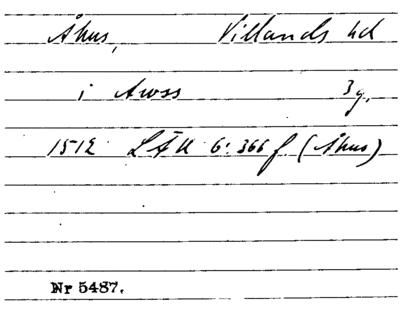 Åhus, Villands hd
i Awss 3 g.
1512 LÄU 6: 366 f (Åhus)
Nr 5487.